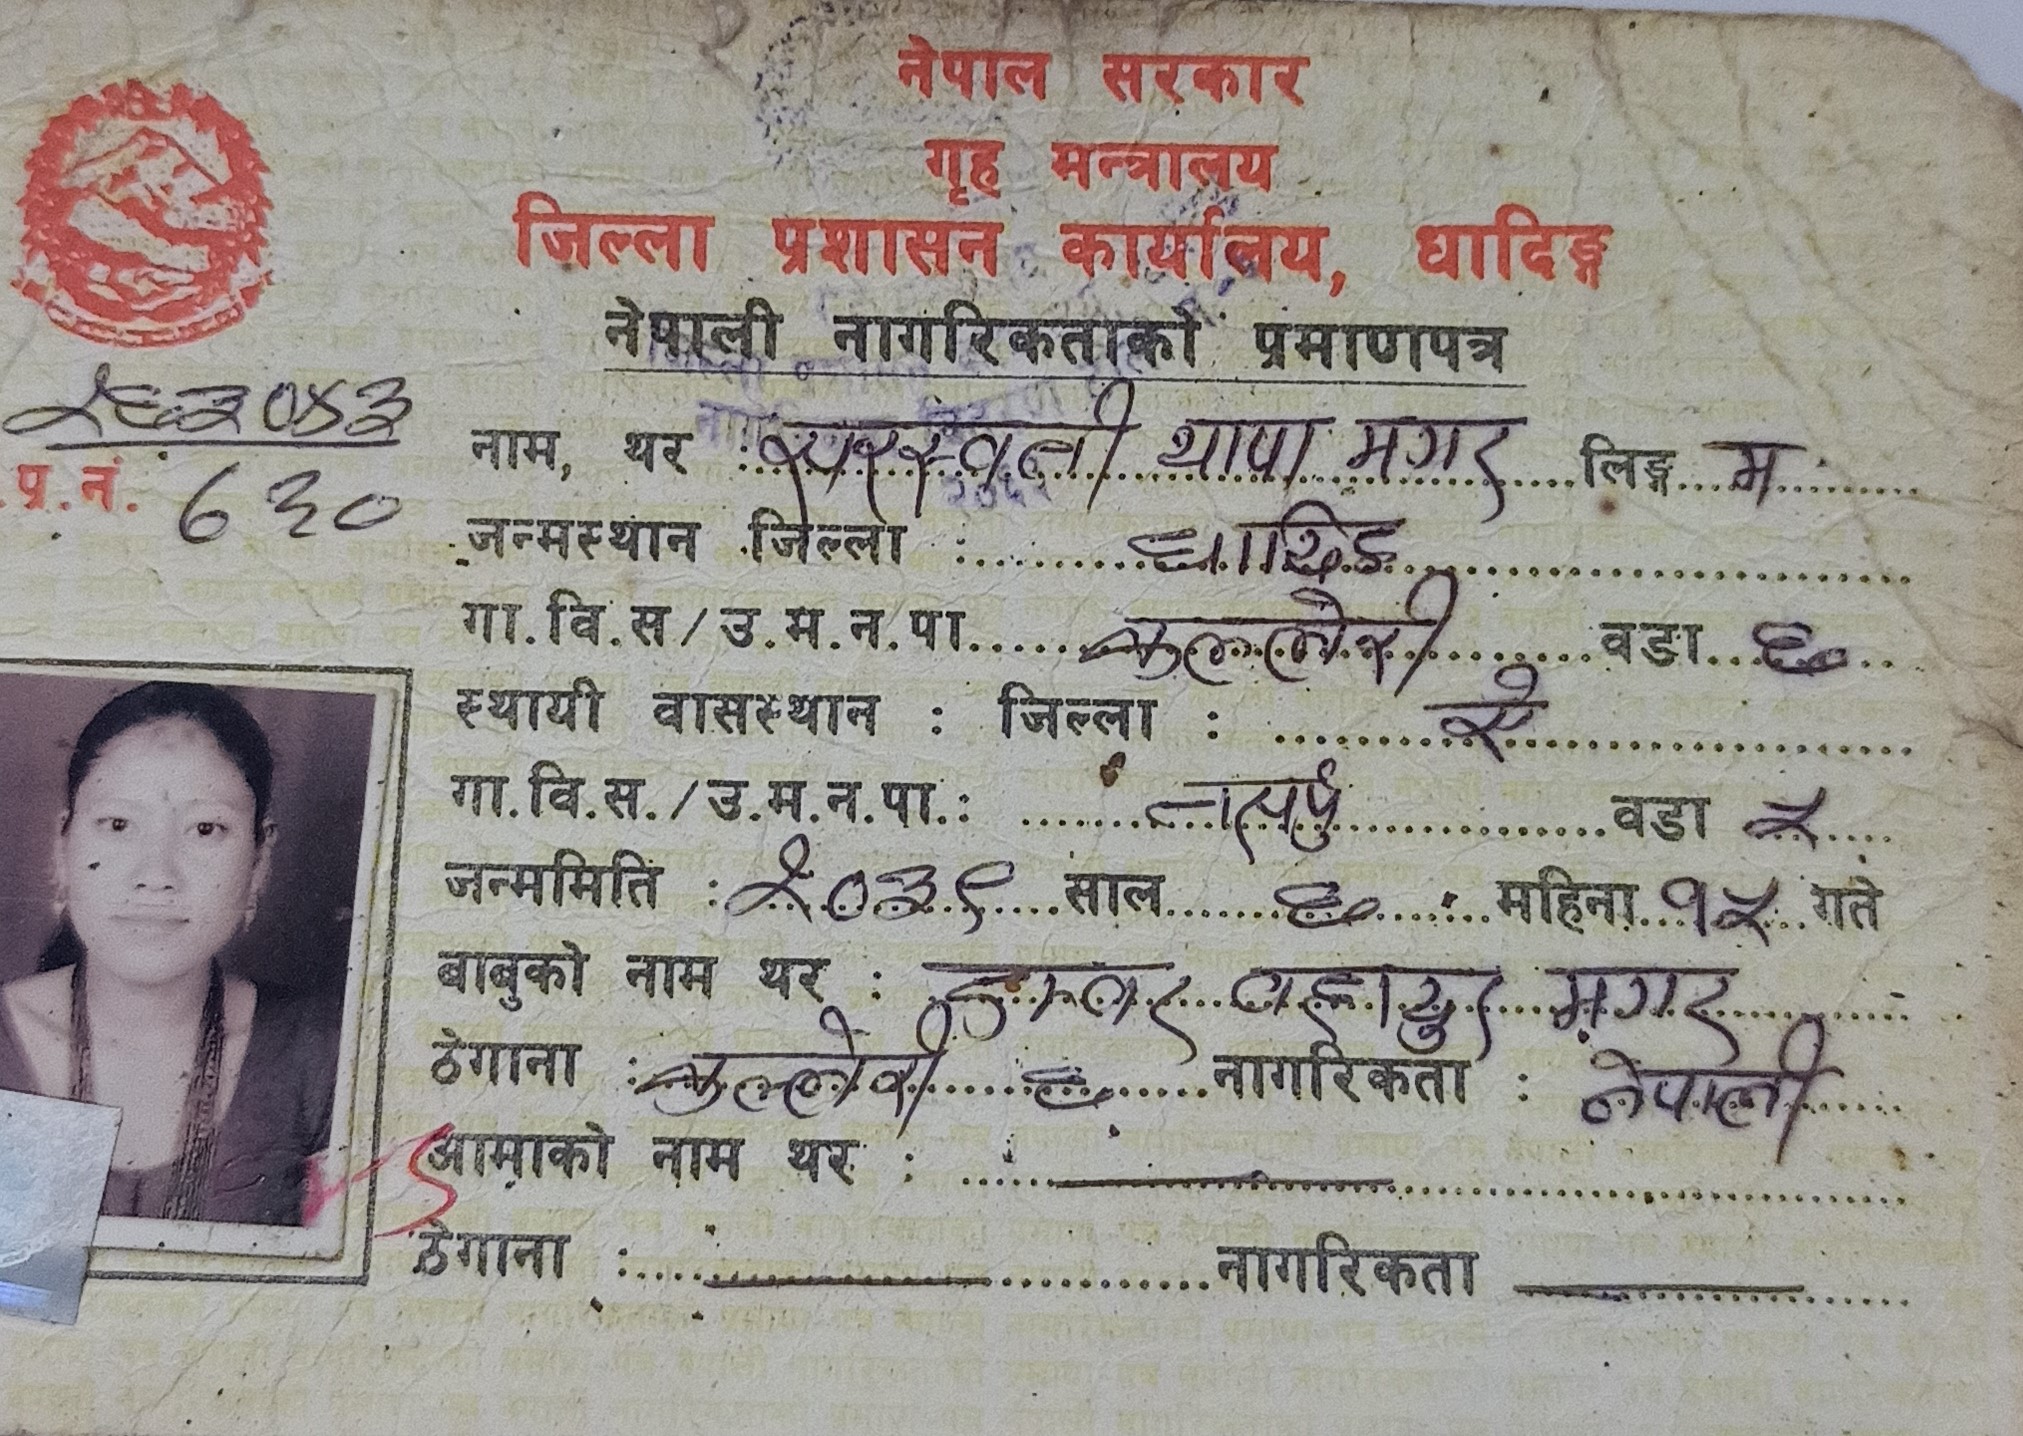 नेपाल सरकार
गृह मन्त्रालय
जिल्ला प्रशासन कार्यालय, धादिङ्ग
नेपाली नागरिकताको प्रमाणपत्र
प्र.नं.
नाम, थर : सरस्वती थापा मगर लिङ्ग म
जन्मस्थान जिल्ला : धादिङ
गा.वि.स/उ.म.न.पा. वडा ६
स्थायी वासस्थान : जिल्ला : ऐ
गा.वि.स./उ.म.न.पा.: वडा ५
जन्ममिति : २०३९ साल ६ महिना १५ गते
बाबुको नाम थर : बहादुर मगर
ठेगाना : नागरिकता : नेपाली
आमाको नाम थर :
ठेगाना : नागरिकता